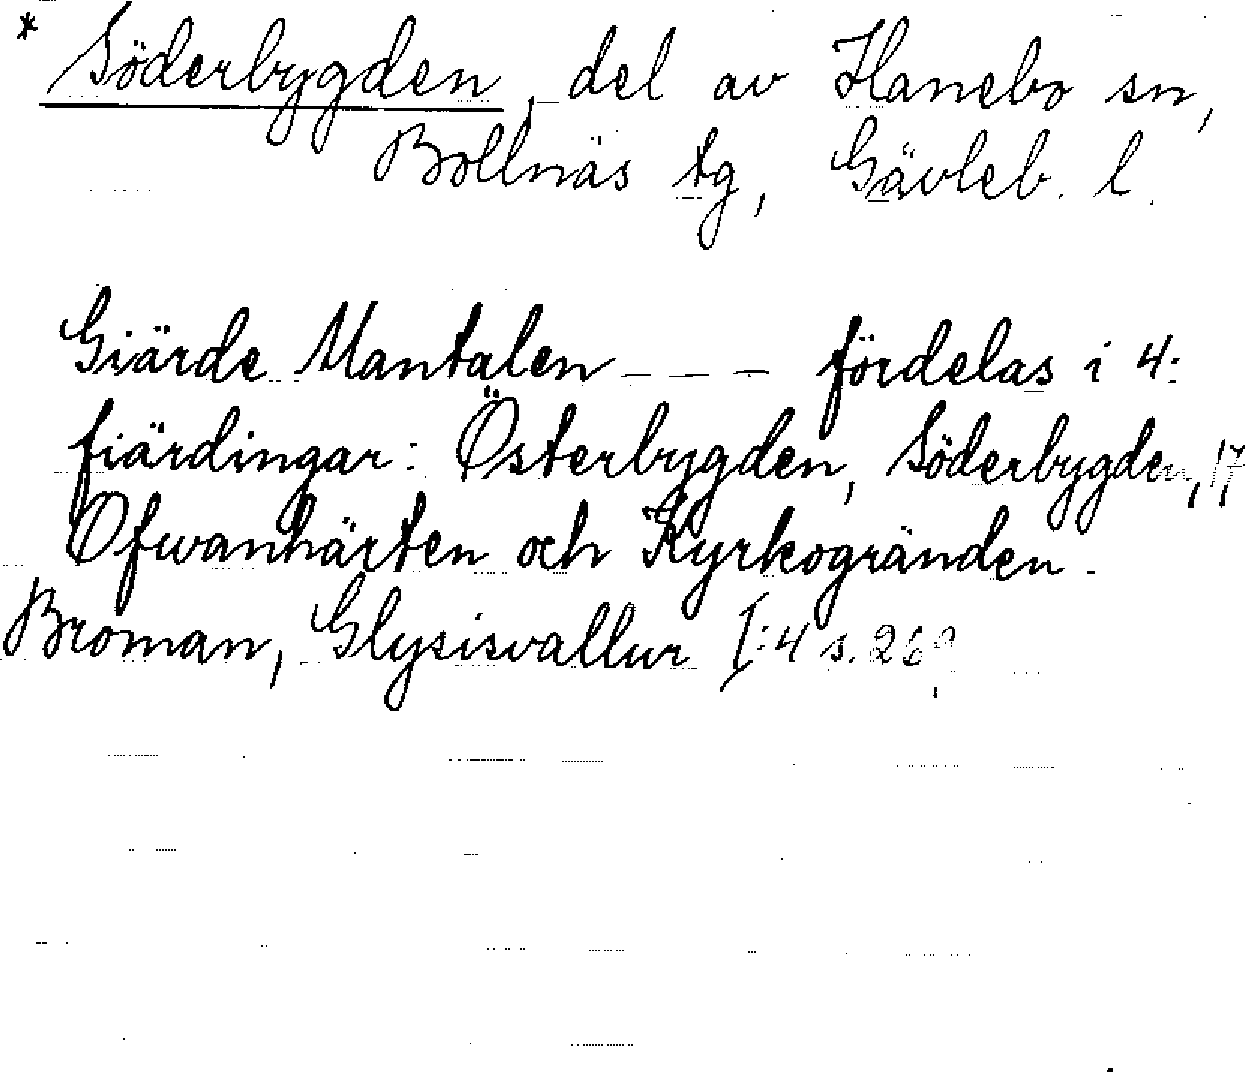 * Söderbygden, del av Hanebo sn,
Bollnäs tg, Gävleb. l.
Giärde Mantalen - - - fördelas i 4:
fiärdingar: Österbygden, Söderbygden, 17
Ofwanhärten och Kyrkogränden.
Broman, Glysisvallur I:4 s.